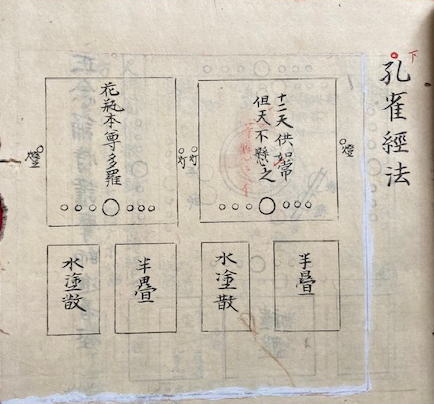 下
孔雀經法
燈
十二天供如常
但天不懸之
灯
灯
花瓶本尊多羅
燈
半畳
水塗散
半畳
水塗散